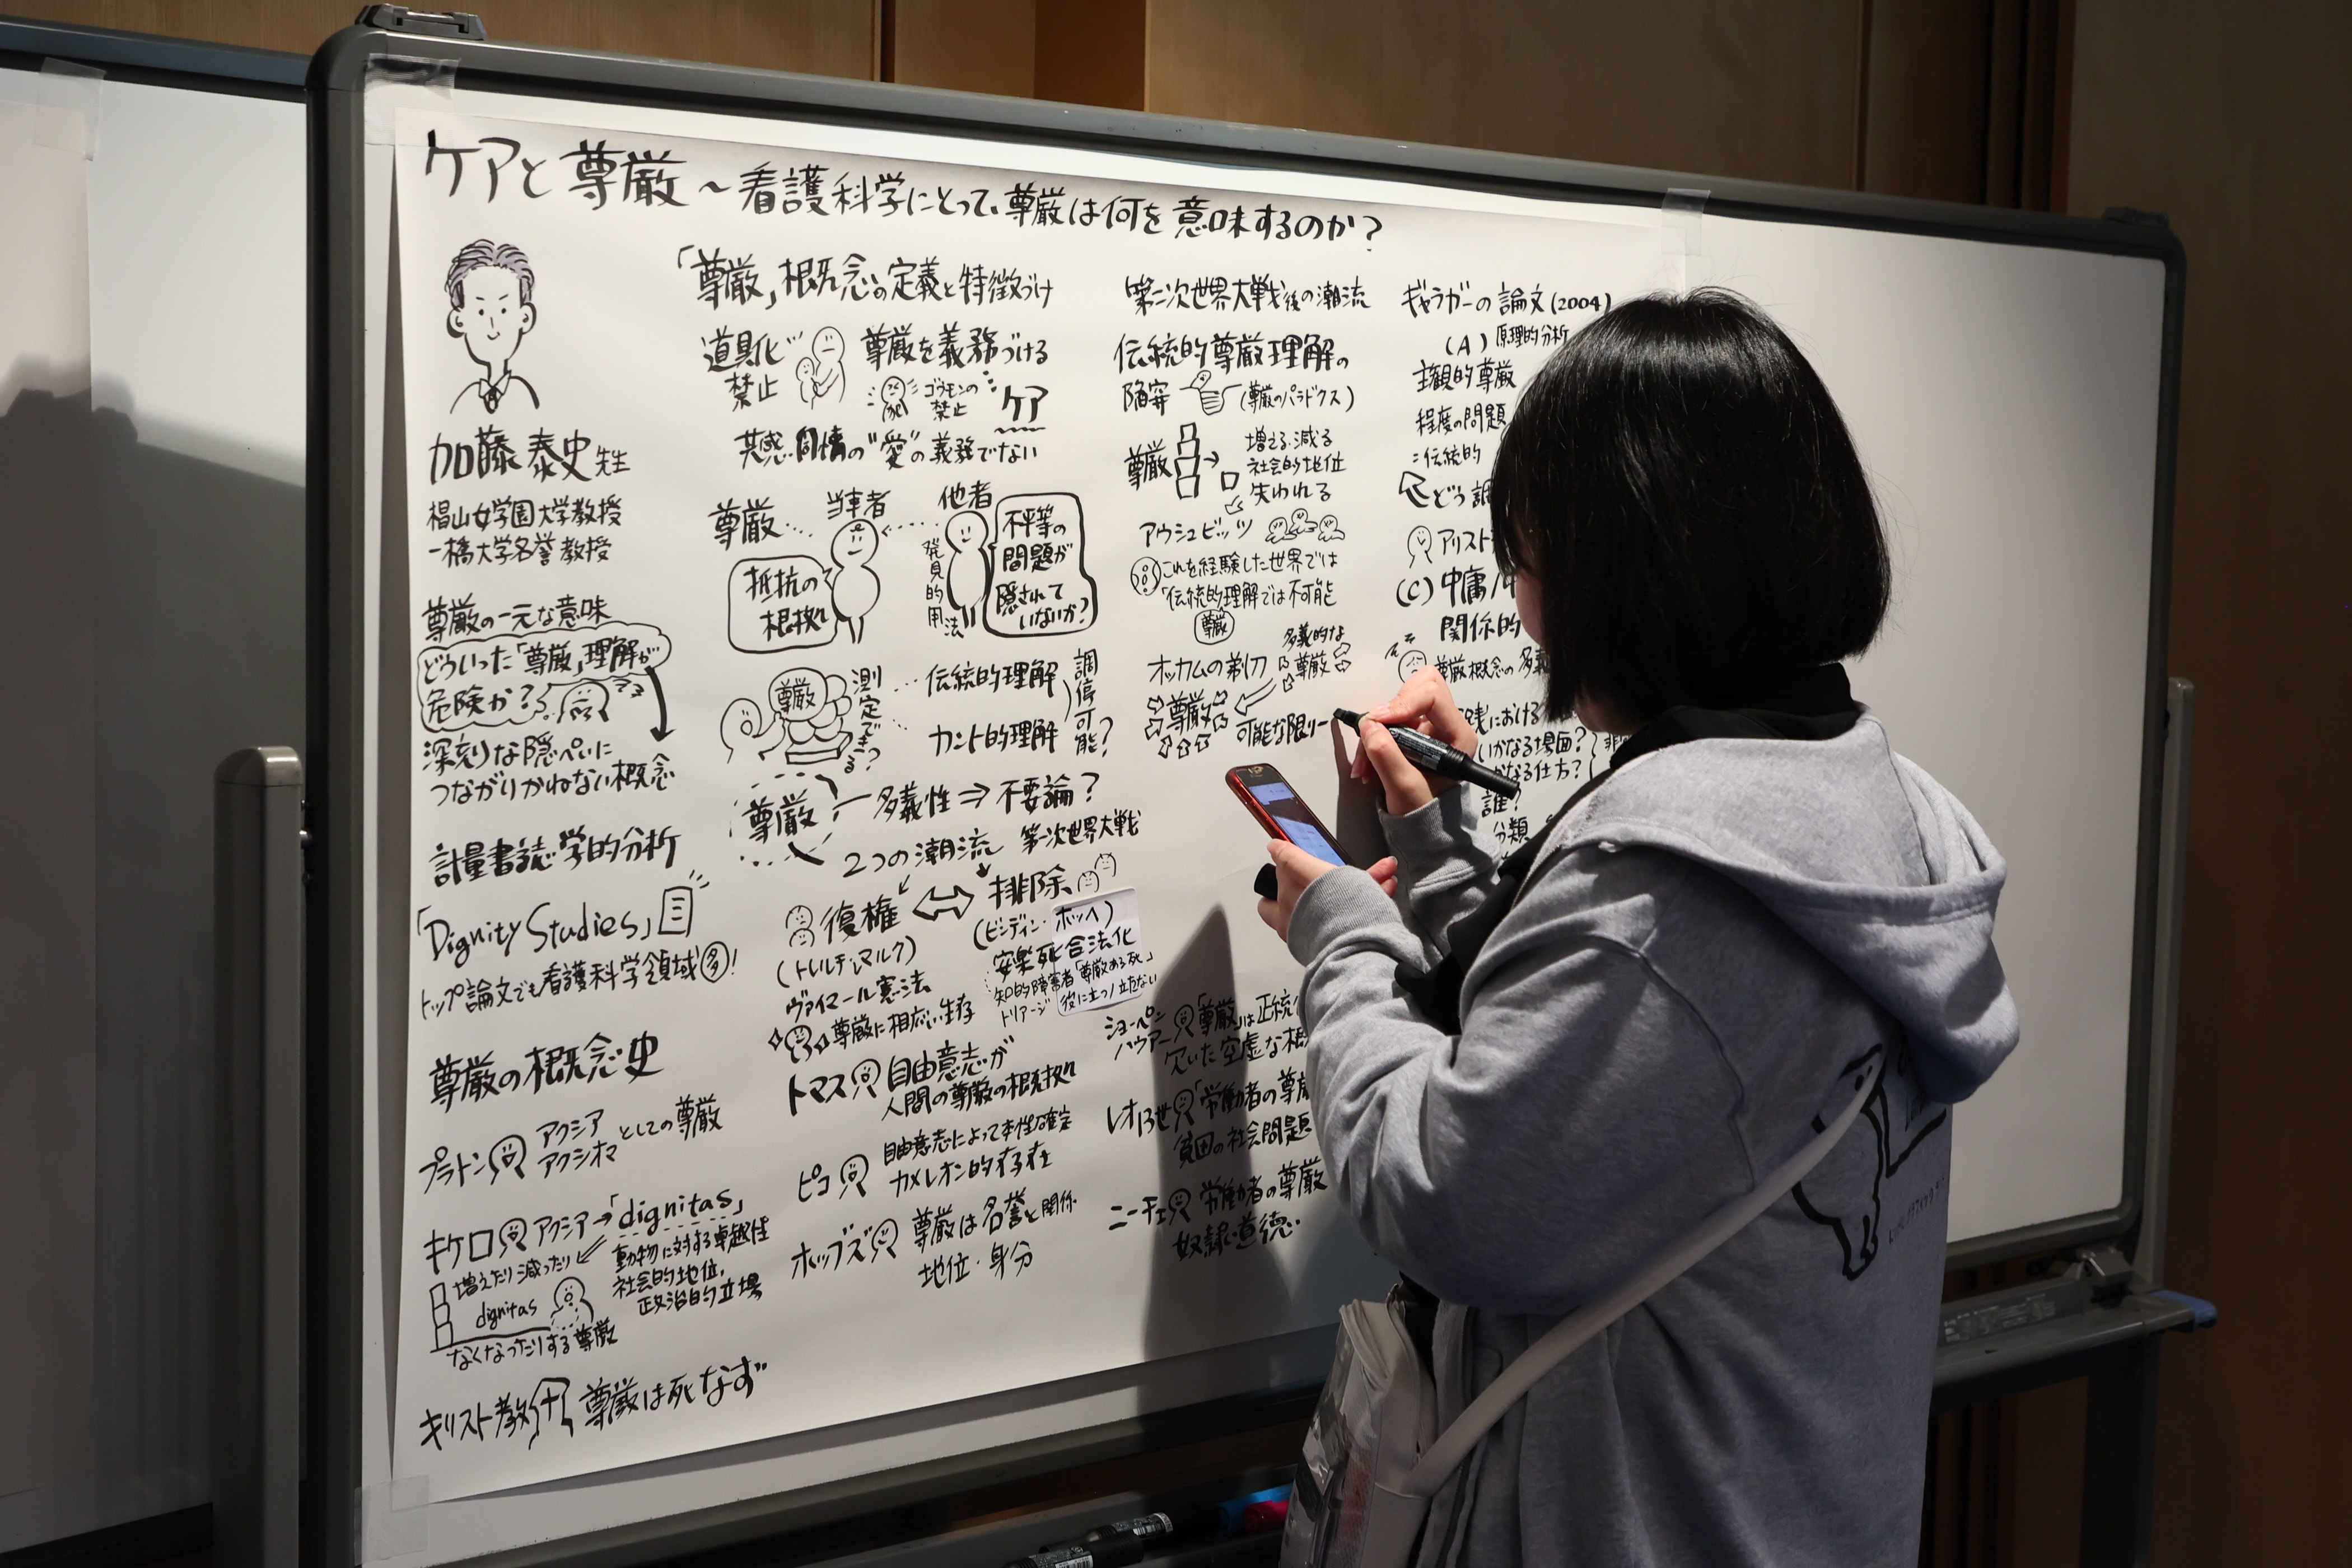 ケアと尊厳～看護科学にとって、尊厳は何を意味するのか？
加藤泰史先生
椙山女学園大学教授
一橋大学名誉教授
尊厳の一元な意味
どういった「尊厳」理解が
危険か？
深刻な隠ぺいに
つながりかねない概念
計量書誌学的分析
「Dignity Studies」
トップ論文でも看護科学領域多！
尊厳の概念史
プラトン
アクシア
アクシオマ
としての尊厳
キケロ
アクシア→「dignitas」
増えたり減ったり
dignitas
なくなったりする尊厳
動物に対する卓越性
社会的地位、
政治的立場
キリスト教
尊厳は死なず
「尊厳」概念の定義と特徴づけ
道具化
禁止
尊厳を義務づける
ゴウモンの
禁止
ケア
共感・同情の"愛"の義務でない
尊厳…
当事者
他者
抵抗の
根拠
発見的用法
不平等の
問題が
隠されて
いないか？
尊厳
測定できる？
伝統的理解
カント的理解
調停可能？
尊厳
多義性⇒不要論？
2つの潮流
第一次世界大戦
復権
⇔
排除
(トレルチ、マルク)
ヴァイマール憲法
尊厳に相応しい生存
(ビンディン・ホッヘ)
安楽死合法化
知的障害者「尊厳ある死」
トリアージ
役に立つ/立たない
トマス
自由意志が
人間の尊厳の根拠
ピコ
自由意志によって本性を確定
カメレオン的存在
ホッブズ
尊厳は名誉と関係
地位・身分
第二次世界大戦後の潮流
伝統的尊厳理解の
陥穽
(尊厳のパラドクス)
尊厳
増える・減る
社会的地位
失われる
アウシュビッツ
これを経験した世界では
「伝統的理解では不可能
尊厳
オッカムの剃刀
多義的な
尊厳
尊厳
可能な限り一
ショーペンハウアー
「尊厳」は正統
欠いた空虚な概
レオ13世
「労働者の尊厳
貧困の社会問題
ニーチェ
労働者の尊厳
奴隷道徳
ギャラガーの論文(2004)
(A) 原理的分析
主観的尊厳
程度の問題
：伝統的
どう調
アリスト
(C) 中庸
関係的
尊厳概念の多義
践における
いかなる場面？
かなる仕方？
誰？
分類